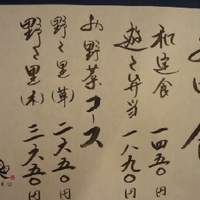 和定食 一四五〇円
遊々弁当 一八九〇円
お野菜コース
野々里(茸) 二六五〇円
野々里(木) 三六五〇円